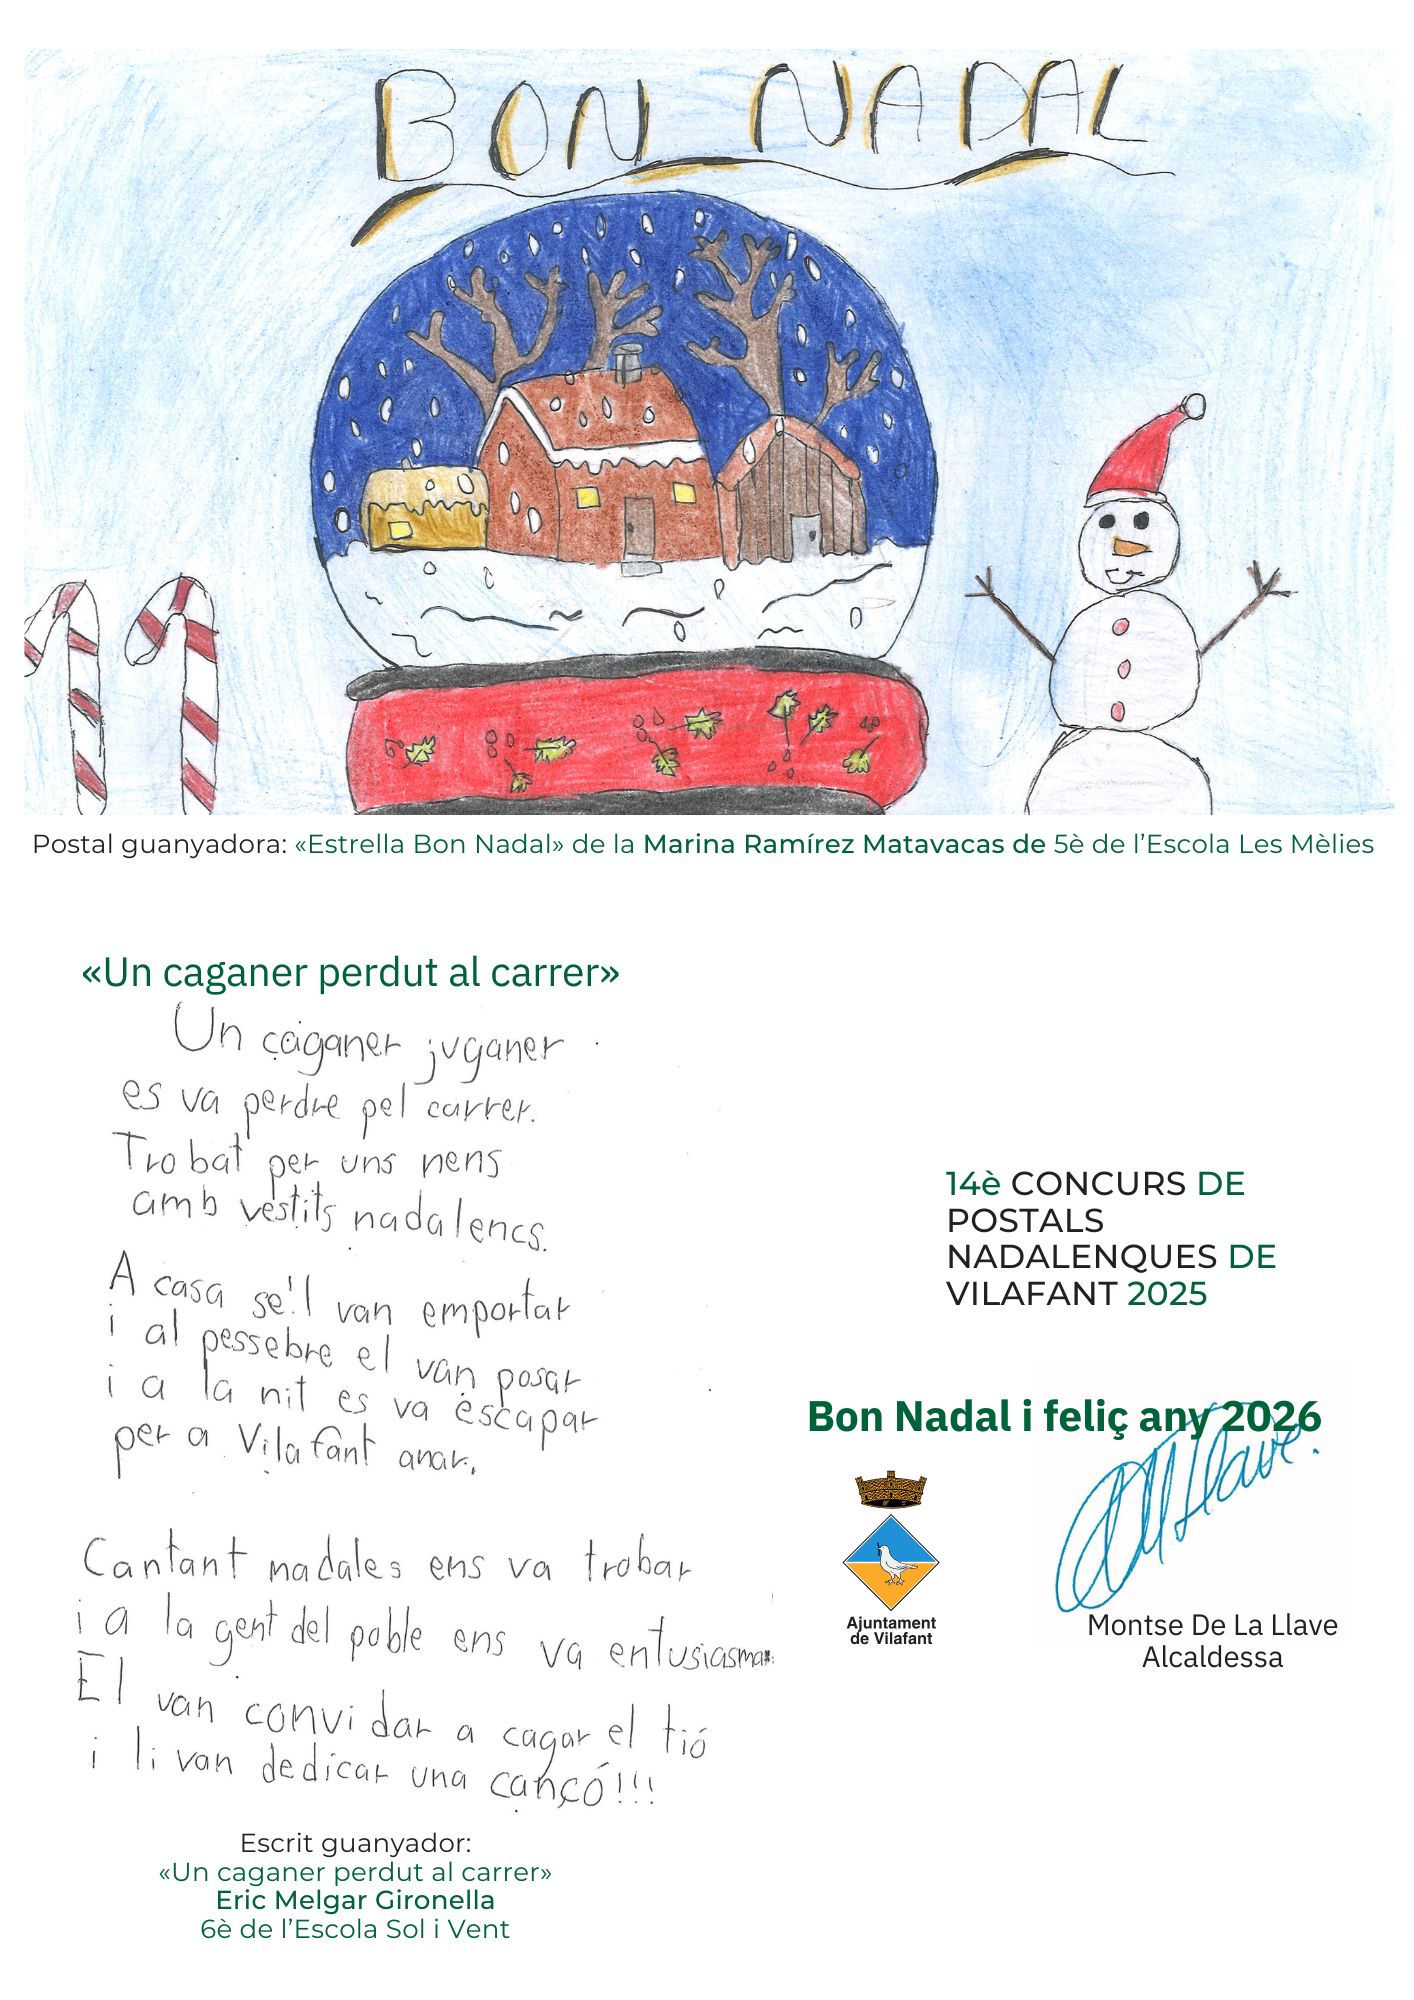 BON NADAL
Postal guanyadora: «Estrella Bon Nadal» de la Marina Ramírez Matavacas de 5è de l’Escola Les Mèlies
«Un caganer perdut al carrer»
Un caganer juganer
es va perdre pel carrer.
Trobat per uns nens
amb vestits nadalencs.
A casa se'l van emportar
i al pessebre el van posar
i a la nit es va escapar
per a Vilafant anar.
Cantant nadales ens va trobar
i a la gent del poble ens va entusiasmar.
El van convidar a cagar el tió
i li van dedicar una cançó!!!
Escrit guanyador:
«Un caganer perdut al carrer»
Eric Melgar Gironella
6è de l’Escola Sol i Vent
14è CONCURS DE
POSTALS
NADALENQUES DE
VILAFANT 2025
Bon Nadal i feliç any 2026
Ajuntament
de Vilafant
Montse De La Llave
Alcaldessa